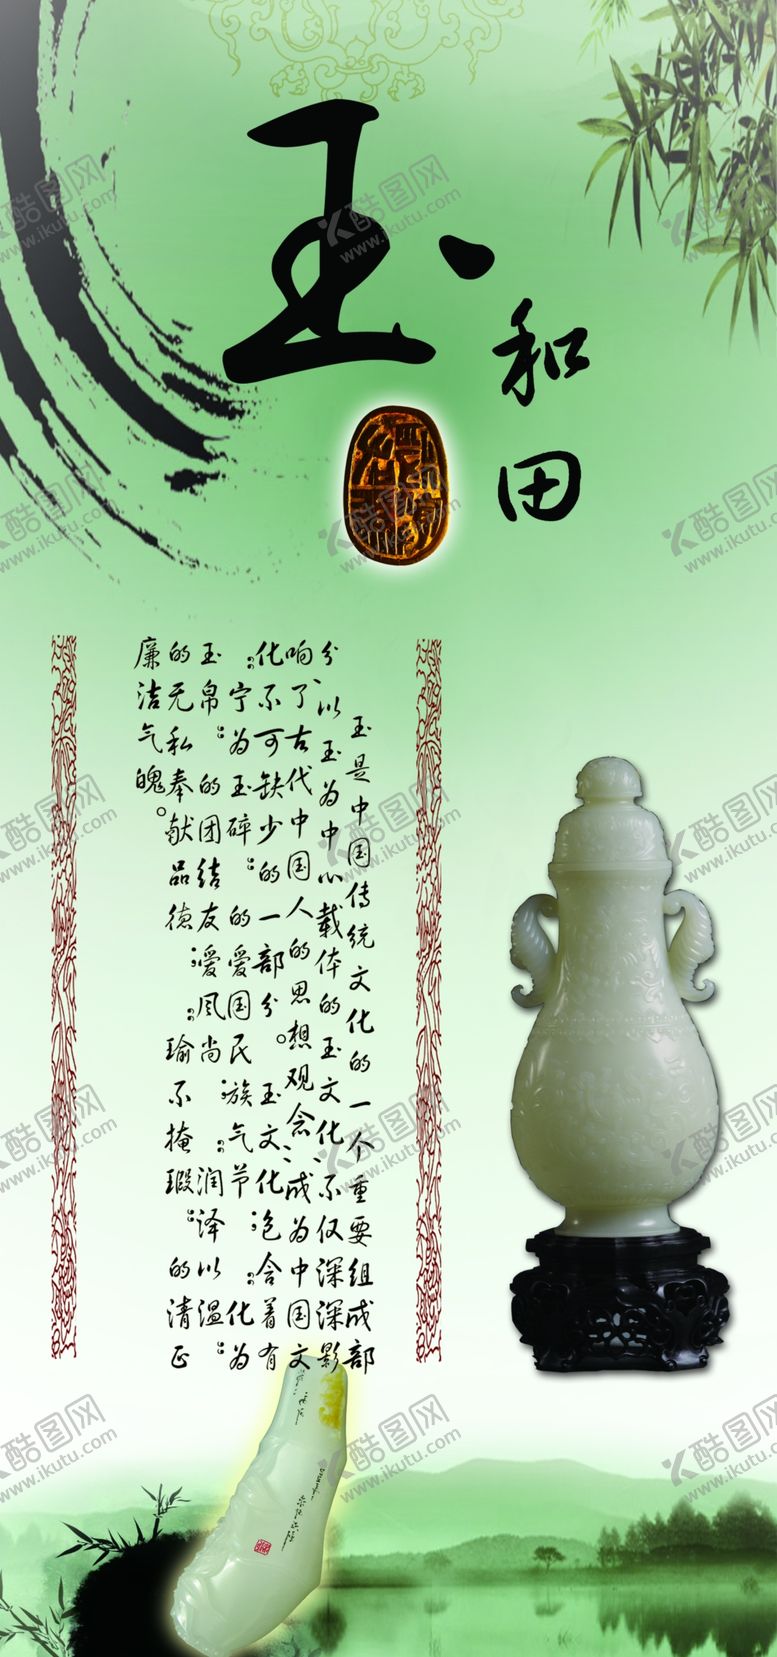 玉
和田
玉是中国传统文化的一个重要组成部
分、以玉为中心载体的玉文化、不仅深深影
响了古代中国人的思想观念、成为中国文
化不可缺少的一部分。玉文化包含着有
“宁为玉碎”的爱国民族气节；“化为
玉帛”的团结友爱风尚；“润泽以温”
的无私奉献品德；“瑜不掩瑕”的清正
廉洁气魄。
酷图网
www.ikutu.com